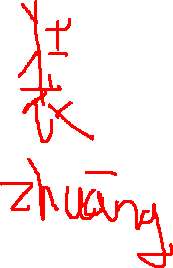 装
zhuāng